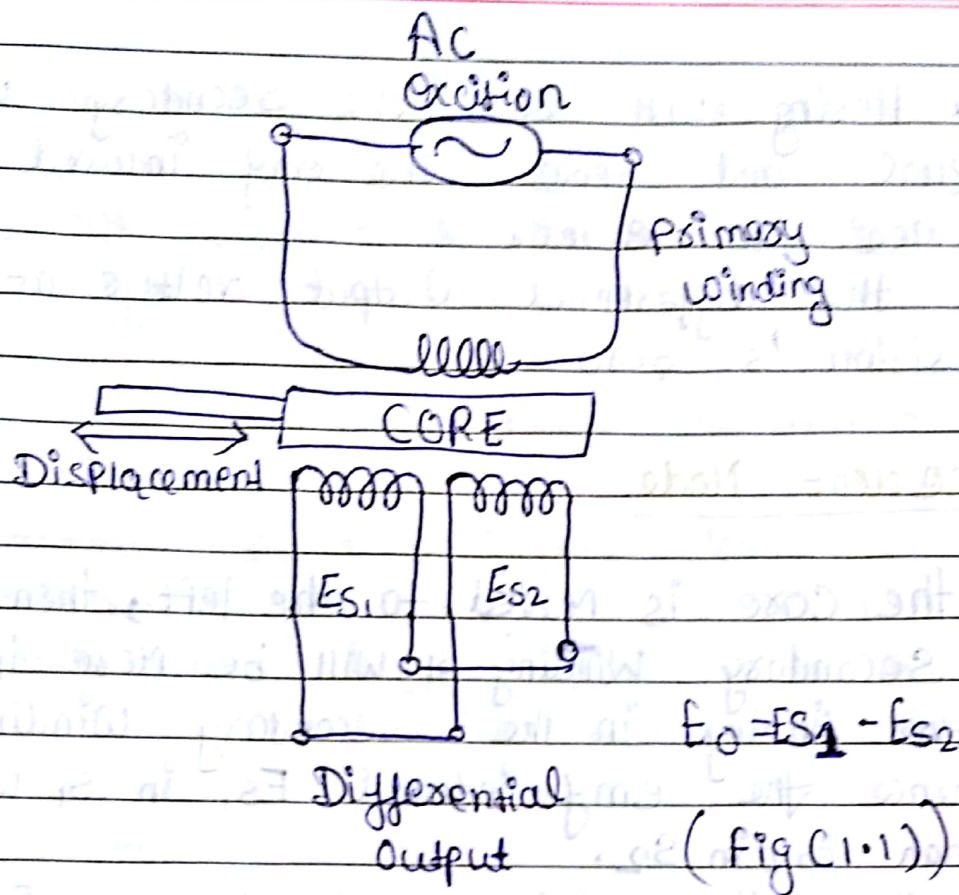 AC
Excition
Primary
winding
CORE
Displacement
Es1 Es2
Eo = ES1 - Es2
Differential
Output
(fig (1.1))